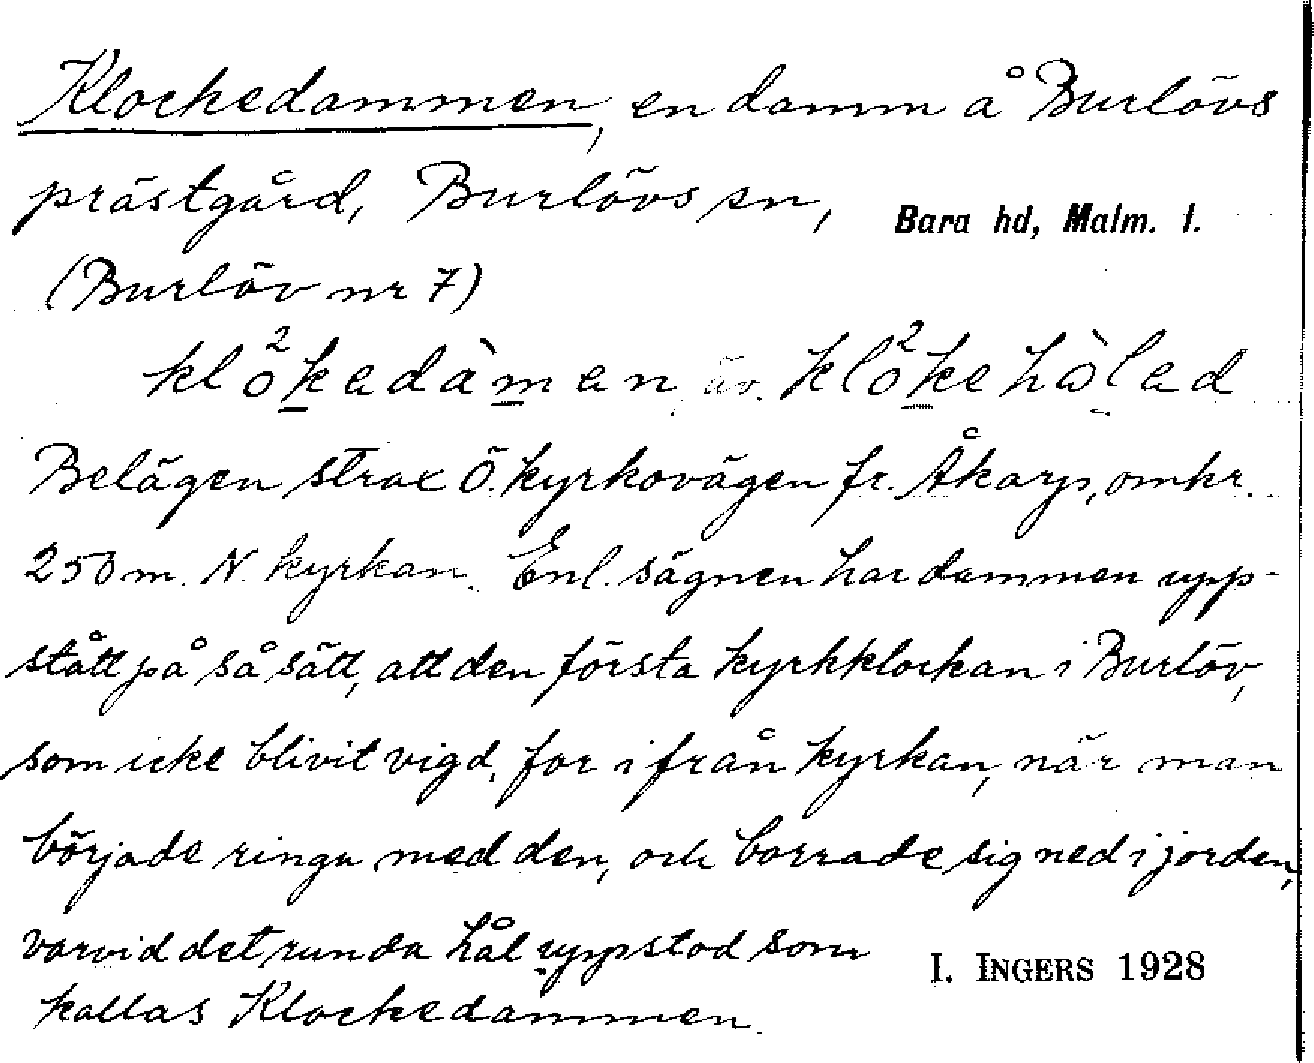 Klockedammen, en damm å Burlövs
prästgård, Burlövs sn, Bara hd, Malm. l.
(Burlöv nr 7)
klo²kedàmen äv. klo²kehåled
Belägen strax Ö. kyrkovägen fr. Åkarp, omkr.
250 m. N. kyrkan. Enl. sägnen har dammen upp-
stått på så sätt, att den första kyrkklockan i Burlöv,
som icke blivit vigd, for ifrån kyrkan, när man
började ringa med den, och borrade sig ned i jorden,
varvid det runda hål uppstod som
kallas Klockedammen.
I. INGERS 1928